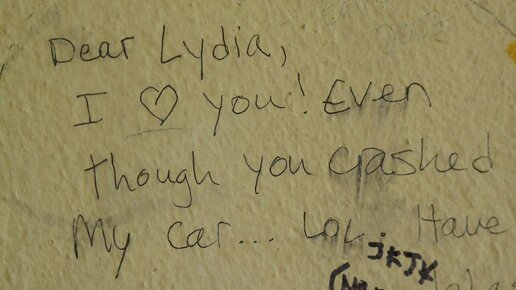 Dear Lydia,
I ♡ you! Even
though you crashed
My car... LOL. Have
JKJK